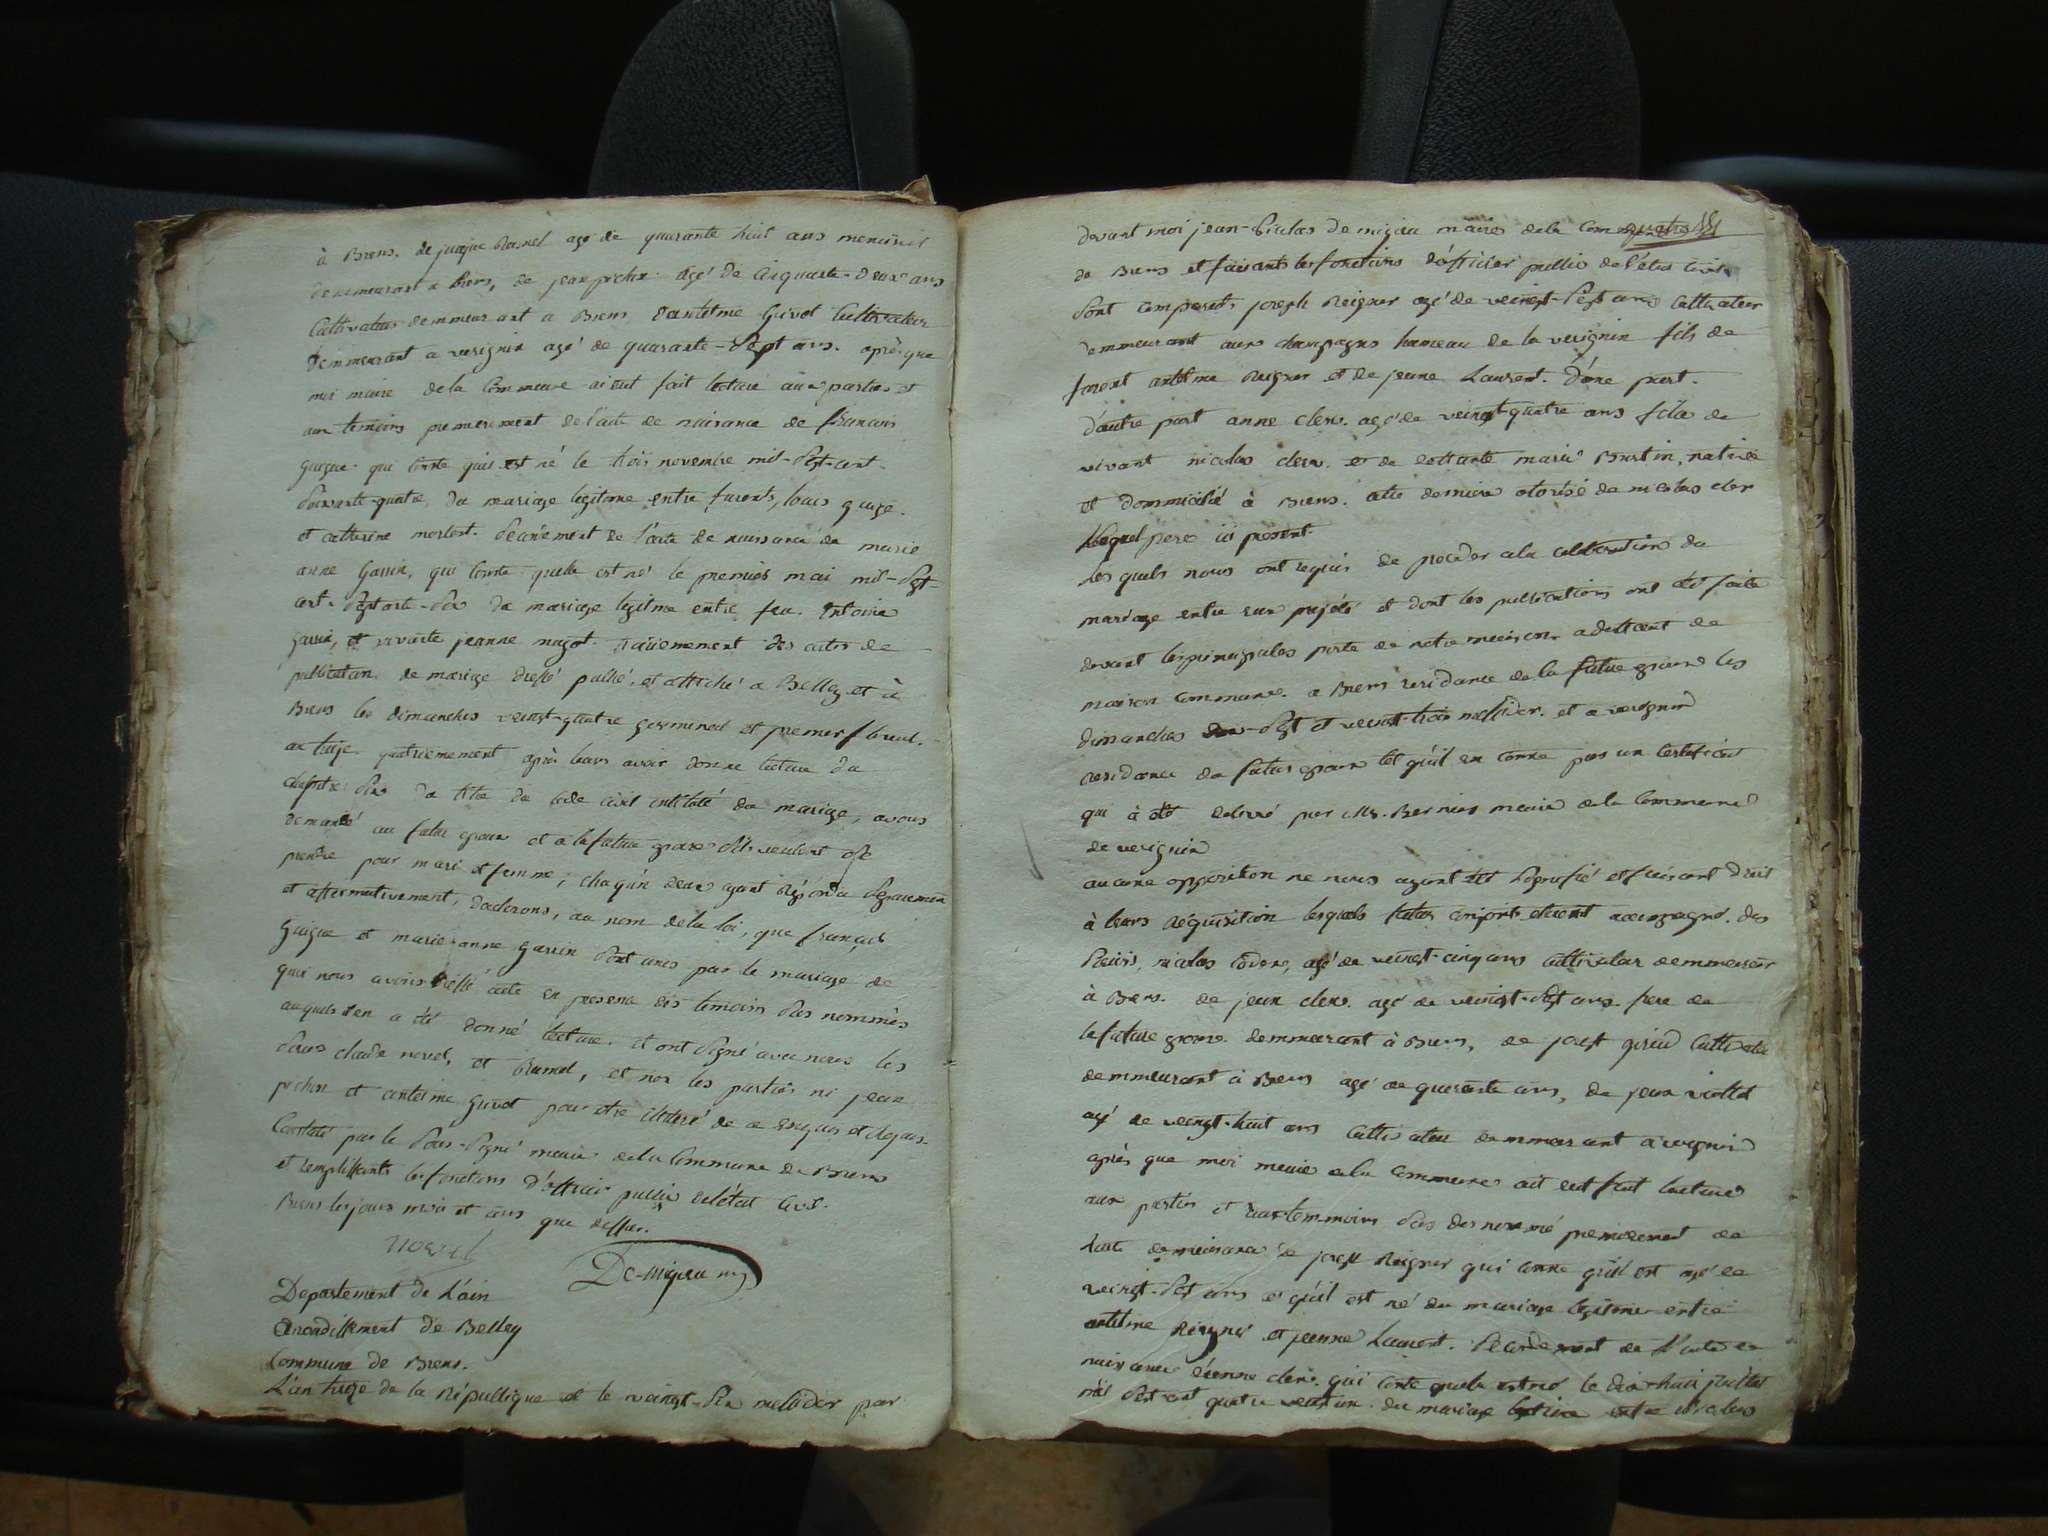 à Brens. de jaque Brunel agé de quarante huit ans menuisié
demmeurant a Brens, de jean pichon agé de Cinquante-deux ans
Cultivateur demmeurant a Brens d'antelme Givot Cultivateur
demmeurant a verignin agé de quarante-Sept ans. après que
moi maire de la Commeune ai eut fait lecture aux parties et
aux temoins premierement de l'acte de naisance de francois
guigue qui Conste quil est né le trois novembre mil-Sept-cent-
Soixante-quatre, du mariage legitime entre furents, louis guige.
et catherine mortest. Secondement de l'acte de naissance de marie
anne Gassin, qui Conste quelle est né le premier mai mil-Sept-
cent-Septante-Six du mariage legitme entre feu Entoine
gassin, et vivante jeanne nugot. troisiemement des actes de
publication de mariage dressé publié, et affiché a Belley et à
Brens les dimanches veingt-quatre germinal et premier floreal
an treize. quatriemement après leurs avoir donne lecture du
chapitre Six du titre du Code civil intitulé du mariage, avons
demandé au futur epoux et a la future epouse S'ils veulent Se
prendre pour mari et femme; chaqu'n deux ayant Répondu Separement
et affirmativement, declarons, au nom de la loi, que françois
Guigue et marie-anne gassin Sont unis par le mariage de
quoi nous avons dressé acte en presence des temoins Sus nommés
auquels il en a été donné lecture. et ont Signé avec nous les
Sieurs claude novel, et Brunel, et non les parties ni jean
pichon et antelme Givot pour etre illiteré de ce enquis et Requis.
Constaté par le Sous-Signé maire de la Commune de Brens
et remplissants les fonctions d'officier public de l'état Civil.
Brens les jours mois et ans que dessus.
novel
De-migieu m
Departement de L'ain
Arrondissement de Belley
Commune de Brens.
L'an treize de la République et le veingt-Six messidor par
devant moi jean-Niculas de migieu maires de la Commune
quatre
de Brens et faisants les fonctions d'officier public de l'état Civil
Sont comparuts joseph Reigner agé de veingt-Sept ans Cultivateur
demmeurant aux champagne hameau de la verignin fils de
furent antelme Reigner et de jeane Laurent. D'une part.
d'autre part anne clerc. agé de veingt-quatre ans fille de
vivant nicolas clerc. et de deffunte marie Burtin, native
et dommicilié à Brens. cette derniere otorisé de nicolas cler
lequel pere ici present.
Les quels nous ont requis de proceder a la celebration du
mariage entre eux projété et dont les publications ont été faite
devant les principales porte de notre maison adittant de
maison commune. a Brens residance de la future epouse les
dimanches dix-Sept et veint-trois messidor. et a verignin
residance du futur epoux tel qu'il en conne par un certificat
qui à été delivré par Mr. Bernier maire de la Commune
de verignin
aucune opposition ne nous ayant été Signifié et faisant droit
à leurs Réquisition lesquels futur conjoints etaient accompagné. des
Sieurs, nicolas Codere, agé de veingt-cinq ans cultivateur demmeurant
à Brens. de jean clerc. agé de veingt-Sept ans. frere de
la future epouse. demmeurant à Brens, de josept girin Cultivateur
demmeurant à Brens agé de quarante ans, de jean viollet
agé de veingt-huit ans Cultivateur demmeurant a verignin
après que moi maire de la commune ait eut fait lecture
aux parties et aux temmoins Sus denommé premierement de
l'acte de naisance de josept Reigner qui conne quil est agé de
veingt-Sept ans et qu'il est né du mariage legitime entre
antelme Reigner et jeanne Laurent. Secondement de l'acte de
naissance d'anne clerc. qui conte quele est né le dix-huit juillet
mil Sept cent quatre veint un du mariage legitime entre nicolas